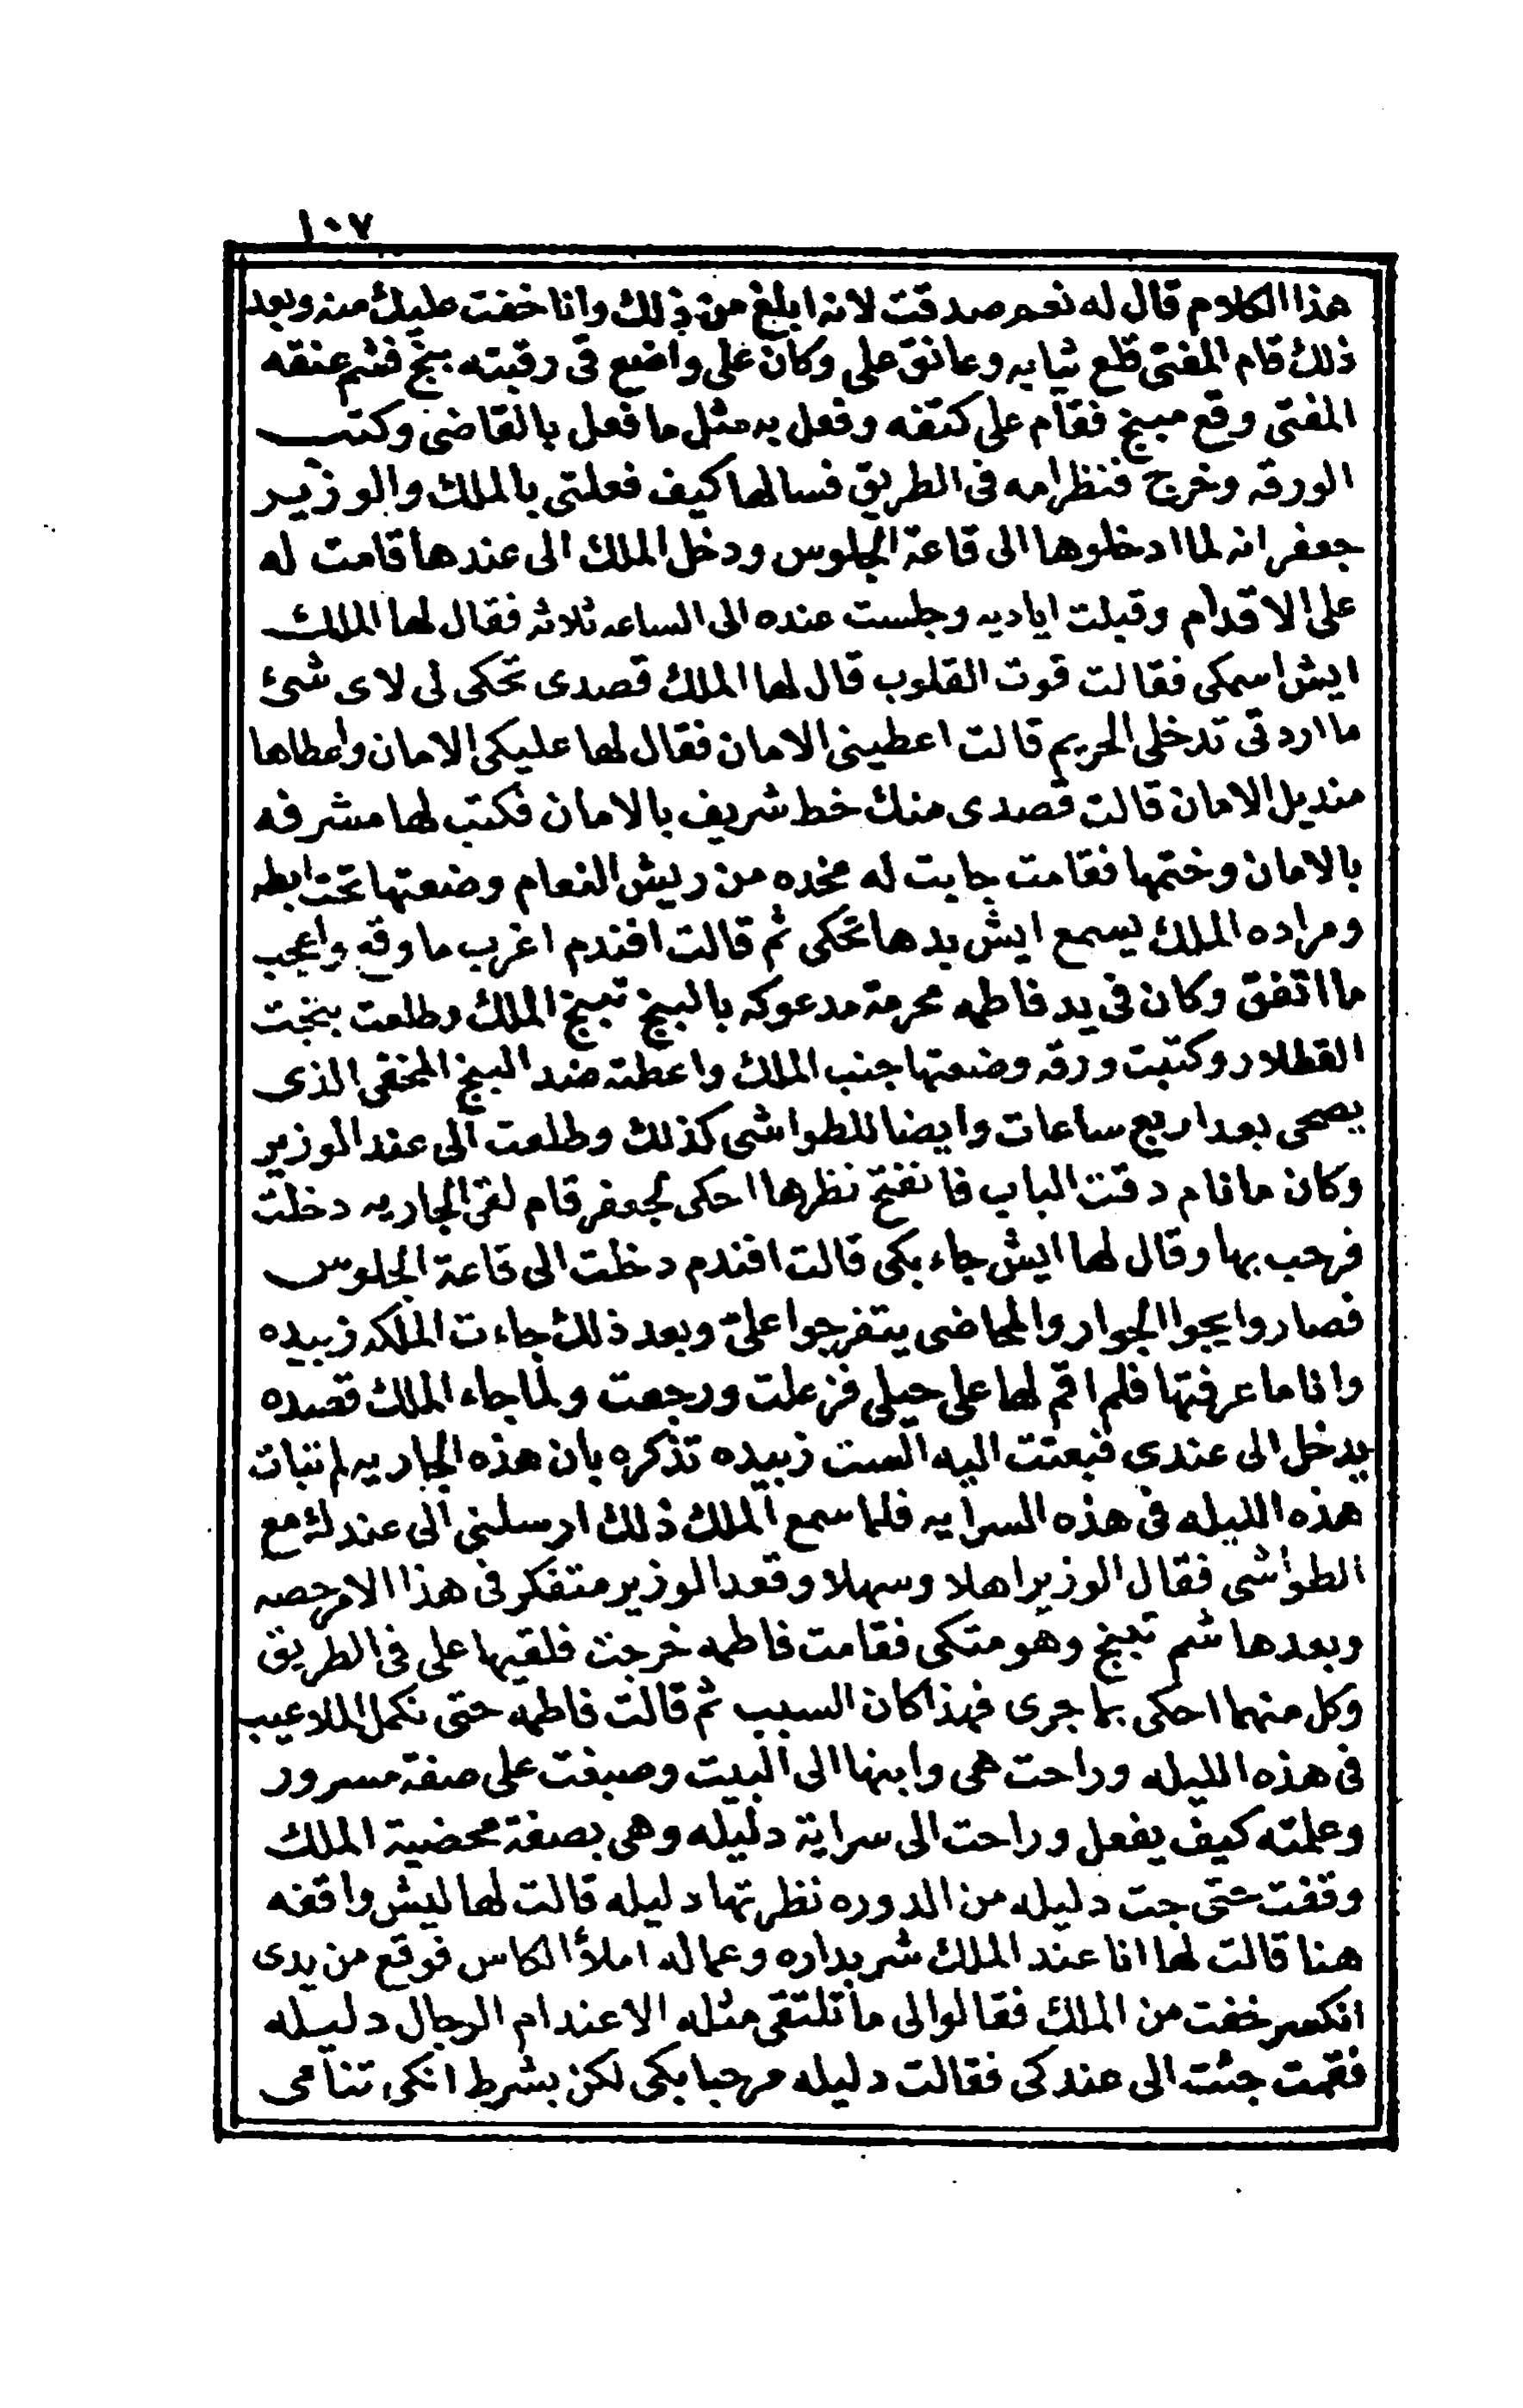 ١٠٧
هذا الكلام قال له نعم صدقت لانه ابلغ من ذلك وانا خفت عليك منه وبعد
ذلك قام المفتى قلع ثيابه وعانق على وكان على واضع فى رقبته بنج فشم عنقه
المفتى وقع مبنج فقام على كتفه وفعل به مثل ما فعل بالقاضى وكتب
الورقه وخرج فنظر امه فى الطريق فسالها كيف فعلتى بالملك والوزير
جعفر انه لما ادخلوها الى قاعة الجلوس ودخل الملك الى عندها قامت له
على الاقدام وقبلت اياديه وجلست عنده الى الساعه ثلاثه فقال لها الملك
ايش اسمكى فقالت قوت القلوب قال لها الملك قصدى تحكى لى لاى شئ
ما اردتى تدخلى الحريم قالت اعطينى الامان فقال لها عليكى الامان واعطاها
منديل الامان قالت قصدى منك خط شريف بالامان فكتب لها مشرفه
بالامان وختمها فقامت جابت له مخده من ريش النعام وضعتها تحت ابطه
ومراده الملك يسمع ايش بدها تحكى ثم قالت افندم اغرب ما وقع واعجب
ما اتفق وكان فى يد فاطمه محرمة مدعوكه بالبنج تبنج الملك وطلعت بنجت
القطلار وكتبت ورقه وضعتها جنب الملك واعطته ضد البنج المخفى الذى
يصحى بعد اربع ساعات وايضا للطواشى كذلك وطلعت الى عند الوزير
وكان ما نام دقت الباب فانفتح نظرها احكى لجعفر قام لقى الجاريه دخلت
فرحب بها وقال لها ايش جاء بكى قالت افندم دخلت الى قاعة الجلوس
فصاروا يجوا الجوار والمحاضى يتفرجوا على وبعد ذلك جاءت الملكه زبيده
وانا ما عرفتها فلم اقم لها على حيلى فزعلت ورجعت ولما جاء الملك قصده
يدخل الى عندى فبعتت اليه الست زبيده تذكره بان هذه الجاريه لم تبات
هذه الليله فى هذه السرايه فلما سمع الملك ذلك ارسلنى الى عندك مع
الطواشى فقال الوزير اهلا وسهلا وقعد الوزير متفكر فى هذا الامر حصه
وبعدها شم تبنج وهو متكى فقامت فاطمه خرجت فلقيها على فى الطريق
وكل منهما احكى بما جرى فهذا كان السبب ثم قالت فاطمه حتى نكمل الملاعيب
فى هذه الليله وراحت هى وابنها الى البيت وصبغت على صفة مسرور
وعلمته كيف يفعل وراحت الى سراية دليله وهى بصفة محضية الملك
وقفت حتى جت دليله من الدوره نظرتها دليله قالت لها ليش واقفه
هنا قالت لها انا عند الملك شربداره وعماله املاؤ الكاس فوقع من يدى
انكسر خفت من الملك فقالوا لى ما تلتقى مثله الا عند ام الرجال دليله
فقمت جئت الى عندكى فقالت دليله مرحبا بكى لكن بشرط انكى تنامى